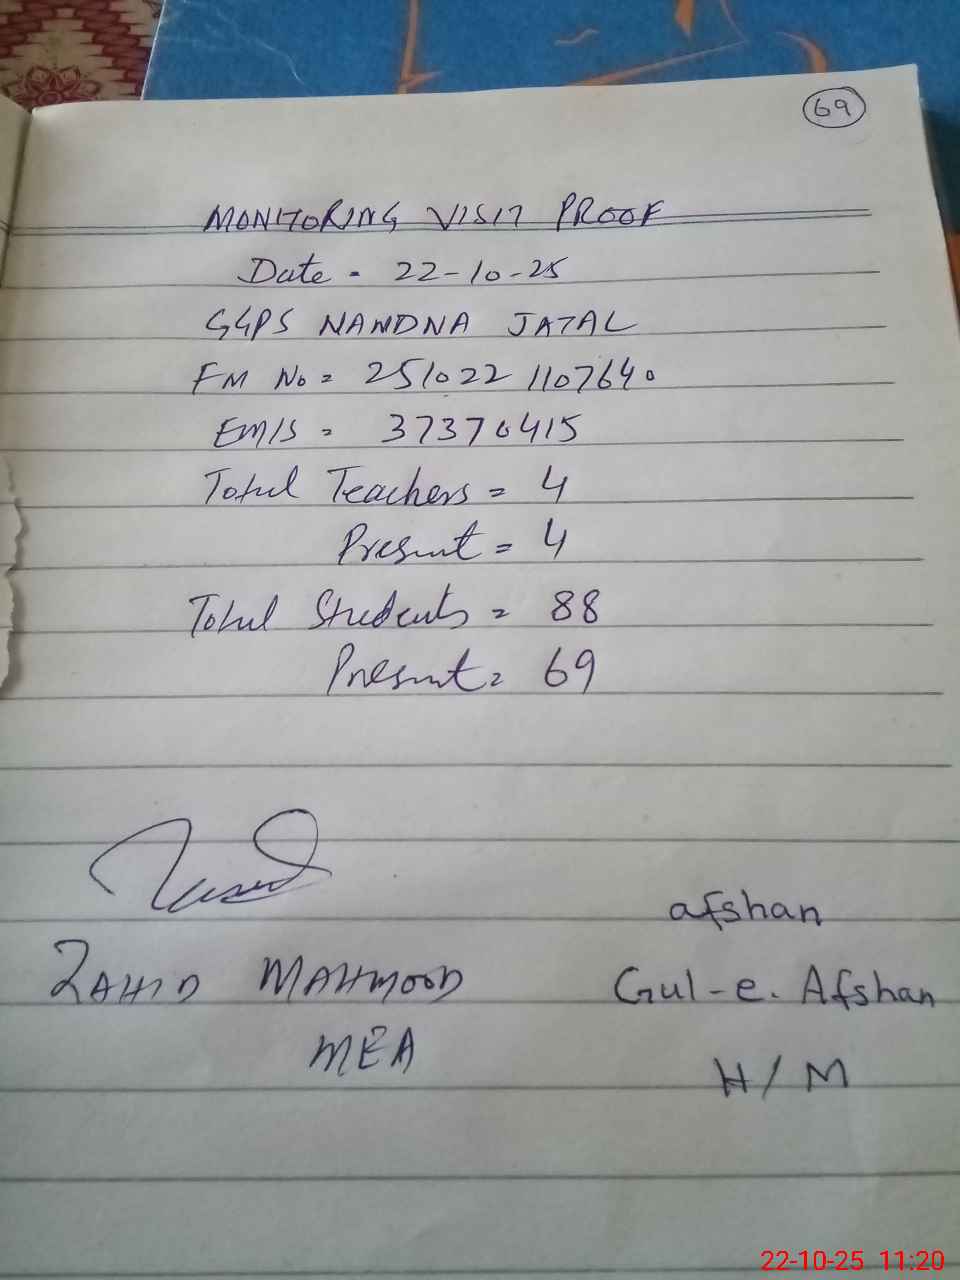 69
MONITORING VISIT PROOF
Date - 22-10-25
GGPS NANDNA JATAL
FM No = 2510221107640
EMIS = 37370415
Total Teachers = 4
Present = 4
Total Students = 88
Present = 69
afshan
ZAHID MAHMOOD
Gul-e. Afshan
MEA
H/M
22-10-25 11:20